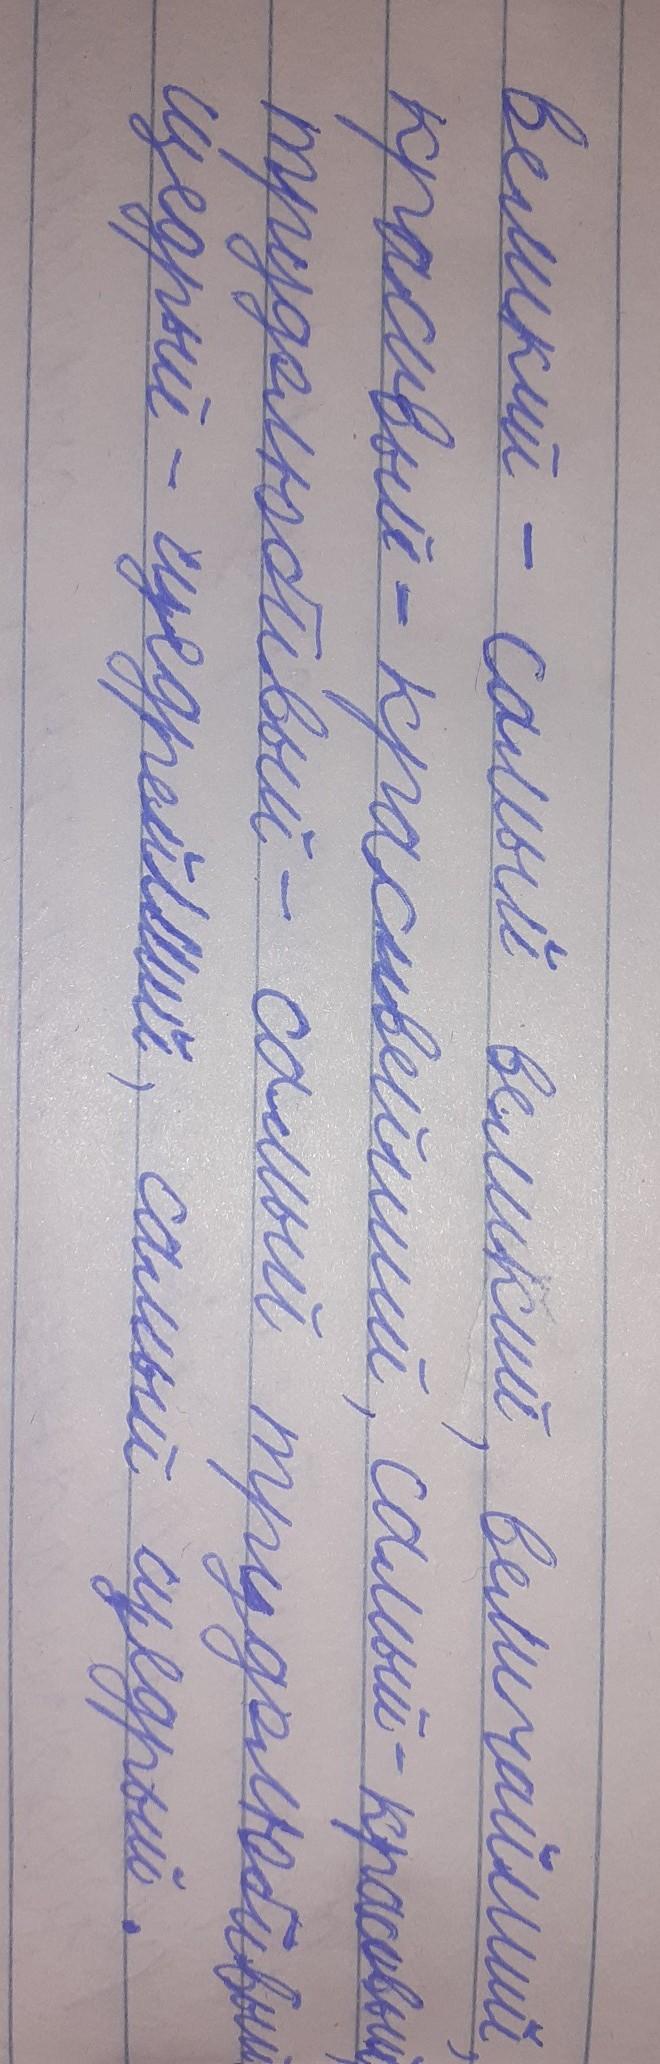 великий - самый великий, величайший,
красивый - красивейший, самый - красивый,
трудолюбивый - самый трудолюбивый
щедрый - щедрейший, самый щедрый.